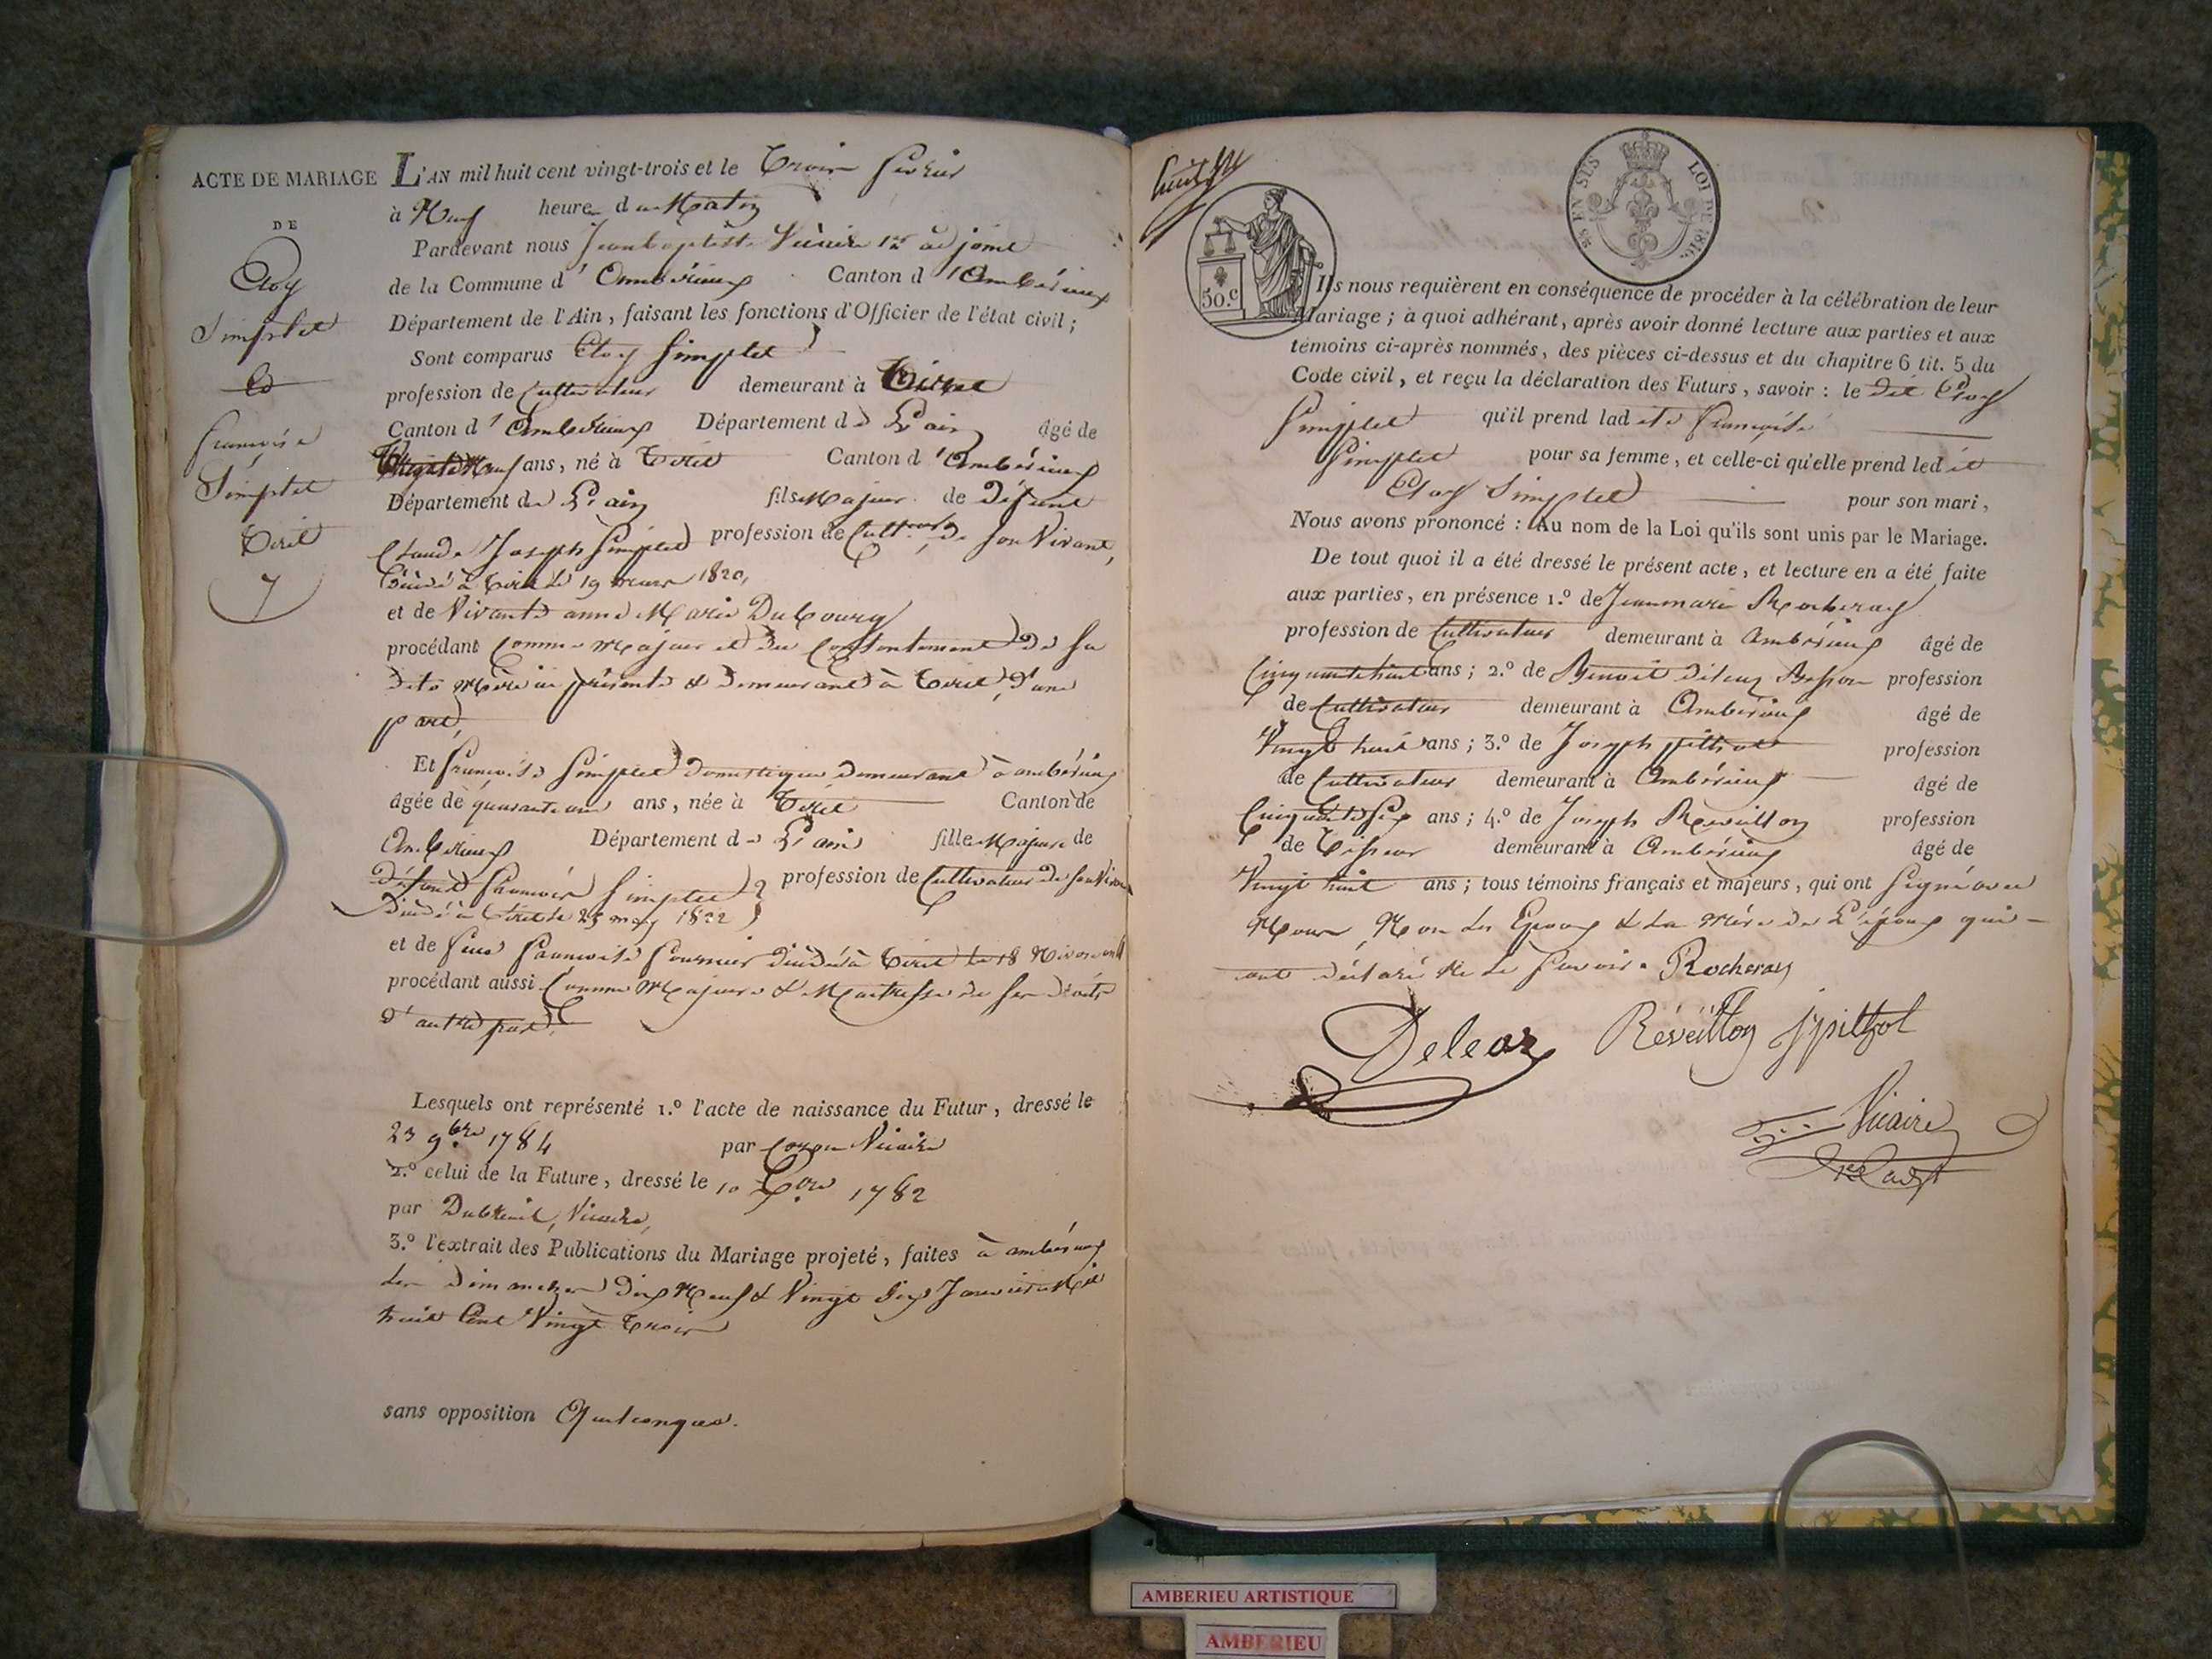 ACTE DE MARIAGE
DE
Eloy
Simplet
Et
françoise
Simplet
Tiret
7
L'AN mil huit cent vingt-trois et le Trois février
à Neuf heures du Matin
Pardevant nous Jeanbaptiste Vicaire 1er adjoint
de la Commune d'Ambérieux Canton d'Ambérieux
Département de l'Ain, faisant les fonctions d'Officier de l'état civil;
Sont comparus Eloy Simplet
profession de Cultivateur demeurant à Tiret
Canton d'Ambérieux Département de L'ain âgé de
ans, né à Tiret Canton d'Ambérieux
Département de L'ain fils Majeur de Défunt
Claude Joseph Simplet profession de de son Vivant,
Décédé à Tiret le 19 mars 1820,
et de Vivante anne Marie Dubourg
procédant Comme Majeur et du Consentement de sa
dite Mère ici présente & demeurant à Tiret, d'une
part,
Et françoise Simplet domestique demeurant à ambérieux
âgée de quarante ans, née à Tiret Canton de
Ambérieux Département de L'ain fille Majeure de
Défunt françois Simplet profession de Cultivateur de son Vivant
Décédé à Tiret le 25 may 1822
et de feue françoise fournier Décédée à Tiret le 18 Nivose
procédant aussi Comme Majeure & Maitresse de ses droits
d'autre part.
Lesquels ont représenté 1.º l'acte de naissance du Futur, dressé le
23 9bre 1784 par Vicaire
2.º celui de la Future, dressé le 10 1782
par Dubreuil, Vicaire,
3.º l'extrait des Publications du Mariage projeté, faites à ambérieux
les dimanches Dix Neuf & Vingt Six Janvier Mil
huit Cent Vingt Trois
sans opposition Quelconque.
50.C
EN SUS
LOI DE 1816
Ils nous requièrent en conséquence de procéder à la célébration de leur
Mariage; à quoi adhérant, après avoir donné lecture aux parties et aux
témoins ci-après nommés, des pièces ci-dessus et du chapitre 6 tit. 5 du
Code civil, et reçu la déclaration des Futurs, savoir: le dit Eloy
Simplet qu'il prend ladite françoise
Simplet pour sa femme, et celle-ci qu'elle prend ledit
Eloy Simplet pour son mari,
Nous avons prononcé: Au nom de la Loi qu'ils sont unis par le Mariage.
De tout quoi il a été dressé le présent acte, et lecture en a été faite
aux parties, en présence 1.º de Jeanmarie Rocheray
profession de Cultivateur demeurant à Ambérieux âgé de
Cinquante huit ans; 2.º de Benoit Deleaz profession
de Cultivateur demeurant à Ambérieux âgé de
Vingt huit ans; 3.º de Joseph pithiot profession
de Cultivateur demeurant à Ambérieux âgé de
Cinquante Six ans; 4.º de Joseph Reveillon profession
de Tisseur demeurant à Ambérieux âgé de
Vingt huit ans; tous témoins français et majeurs, qui ont Signé avec
Nous, Non les Epoux & La Mère de L'époux qui
ont déclaré Ne le Savoir. Rocheray
Deleaz Réveillon
Vicaire
AMBERIEU ARTISTIQUE
AMBERIEU